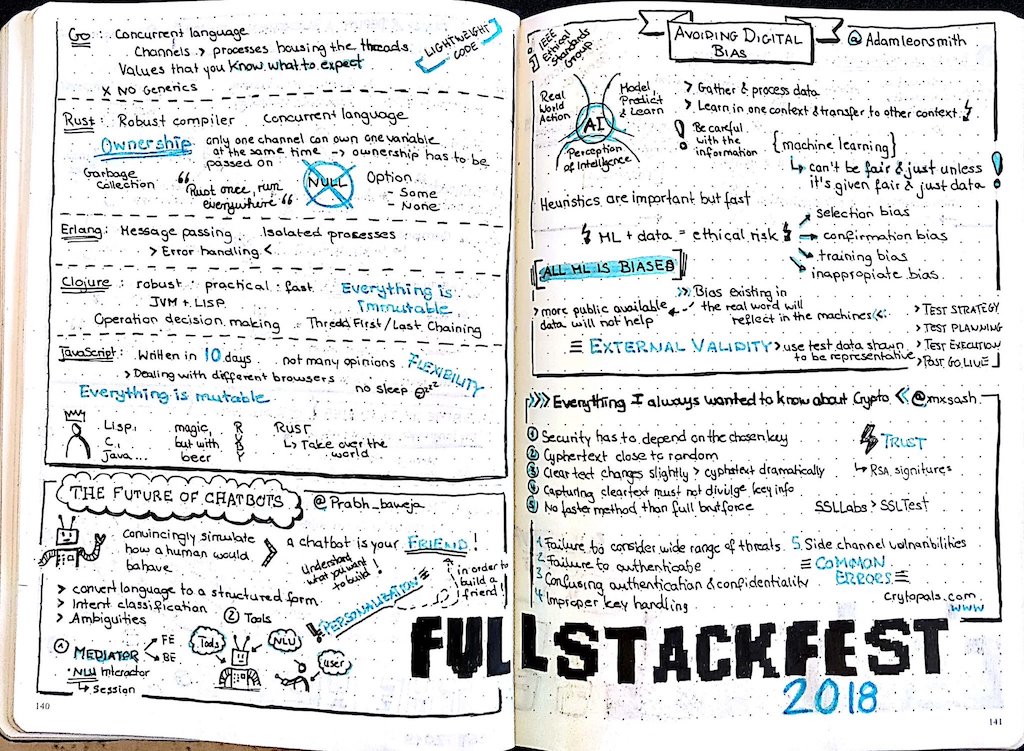 Go: Concurrent language
Channels > processes housing the threads.
Values that you know what to expect
x NO Generics
LIGHTWEIGHT
CODE
Rust: Robust compiler Concurrent language
Ownership only one channel can own one variable
at the same time → ownership has to be
passed on
Garbage
collection
"Rust once, run
everywhere"
NULL
Option
- Some
- None
Erlang: Message passing Isolated processes
> Error handling <
Clojure: robust practical fast
JVM + LISP
Everything is
immutable
Operation decision making Thread First/Last Chaining
JavaScript: Written in 10 days. not many opinions
FLEXIBILITY
> Dealing with different browsers
no sleep zzz
Everything is mutable
Lisp,
C,
Java...
magic,
but with
beer
R
U
B
Y
RUST
↳ Take over the
world
THE FUTURE OF CHATBOTS
@Prabh_baweja
Convincingly simulate
how a human would
bahave
a chatbot is your FRIEND!
Understand
what you want
to build!
in order to
build a
friend!
PERSONALIZATION
> convert language to a structured form
> Intent classification
> Ambiguities
① MEDIATOR
FE
BE
NLU Interactor
↳ Session
② Tools
Tools
NLU
user
140
IEEE
Ethical
Standards
Group
AVOIDING DIGITAL
BIAS
@Adamleonsmith
Real
World
Action
Model,
Predict
& Learn
AI
Perception
of Intelligence
> Gather & process data
> Learn in one context & transfer to other context
! Be careful
with the
information
{machine learning}
↳ can't be fair & just unless
it's given fair & just data!
Heuristics are important but fast
ML + data = ethical risk
selection bias
confirmation bias
training bias
inappropiate bias
ALL ML IS BIASED
>> Bias existing in
the real word will
reflect in the machines <<
> more public available
data will not help
EXTERNAL VALIDITY > use test data shawn
to be representative
> TEST STRATEGY
> TEST PLANNING
> TEST EXECUTION
> POST GO LIVE
>>> Everything I always wanted to know about Crypto << @mxsash
① Security has to depend on the chosen key
② Cyphertext close to random
③ Clear text changes slightly > cyphetext dramatically
④ Capturing cleartext must not divulge key info
⑤ No faster method than full butforce
TRUST
↳ RSA signitures
SSLLabs > SSLTest
1. Failure to consider wide range of threats
2. Failure to authenticate
3. Confusing authentication & confidentiality
4. Improper key handling
5. Side channel vulnaribilities
COMMON
ERRORS
crytopals.com
www
FULLSTACKFEST
2018
141